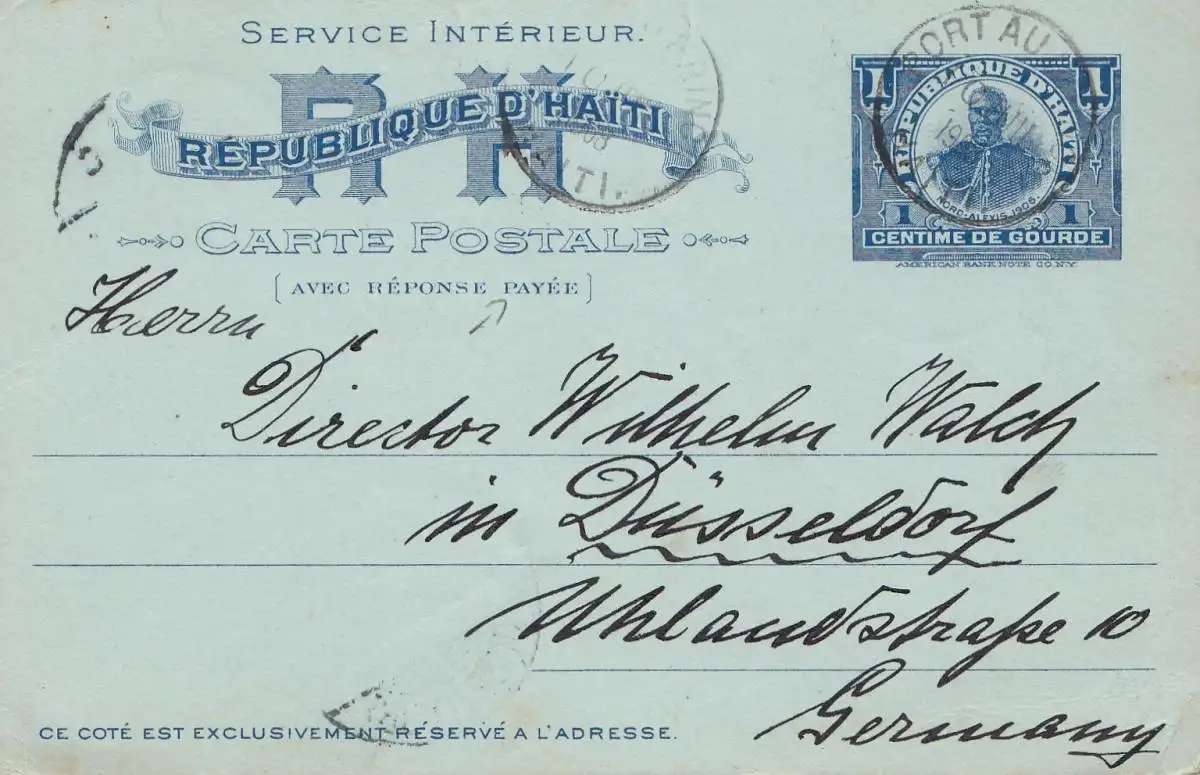 SERVICE INTÉRIEUR.
RH
RÉPUBLIQUE D'HAÏTI
CARTE POSTALE
[AVEC RÉPONSE PAYÉE]
1 1
RÉPUBLIQUE D'HAÏTI
NORD-ALEXIS 1906
1 1
CENTIME DE GOURDE
AMERICAN BANK NOTE CO. N.Y.
PORT AU
Herrn
Director Wilhelm Walch
in Düsseldorf
Uhlandstraße 10
Germany
CE COTÉ EST EXCLUSIVEMENT RÉSERVÉ A L'ADRESSE.